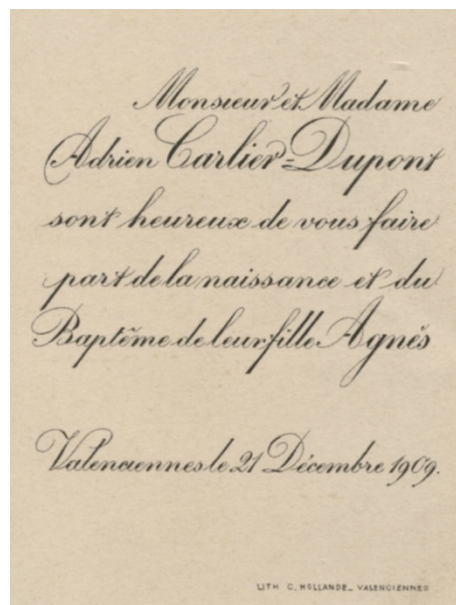 Monsieur et Madame
Adrien Carlier-Dupont
sont heureux de vous faire
part de la naissance et du
Baptême de leur fille Agnès
Valenciennes le 21 Décembre 1909.
LITH. C. HOLLANDE_ VALENCIENNES